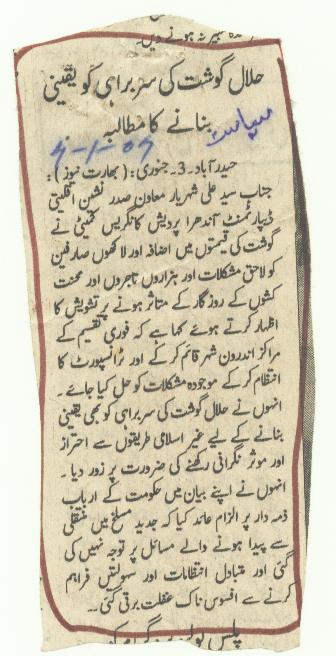 حلال گوشت کی سربراہی کو یقینی
بنانے کا مطالبہ
سیاست
4-1-07
حیدرآباد۔3۔جنوری: (بھارت نیوز):
جناب سید علی شہریار معاون صدر نشین اقلیتی
ڈپارٹمنٹ آندھرا پردیش کانگریس کمیٹی نے
گوشت کی قیمتوں میں اضافہ اور لاکھوں صارفین
کو لاحق مشکلات اور ہزاروں تاجروں اور محنت
کشوں کے روزگار کے متاثر ہونے پر تشویش کا
اظہار کرتے ہوئے کہا ہے کہ فوری تقسیم کے
مراکز اندرون شہر قائم کرکے اور ٹرانسپورٹ کا
انتظام کرکے موجودہ مشکلات کو حل کیا جائے۔
انہوں نے حلال گوشت کی سربراہی کو بھی یقینی
بنانے کے لیے غیر اسلامی طریقوں سے احتراز
اور موثر نگرانی رکھنے کی ضرورت پر زور دیا۔
انہوں نے اپنے بیان میں حکومت کے ارباب
ذمہ دار پر الزام عائد کیا کہ جدید مسلخ میں منتقلی
سے پیدا ہونے والے مسائل پر توجہ نہیں کی
گئی اور متبادل انتظامات اور سہولتیں فراہم
کرنے سے افسوس ناک غفلت برتی گئی۔